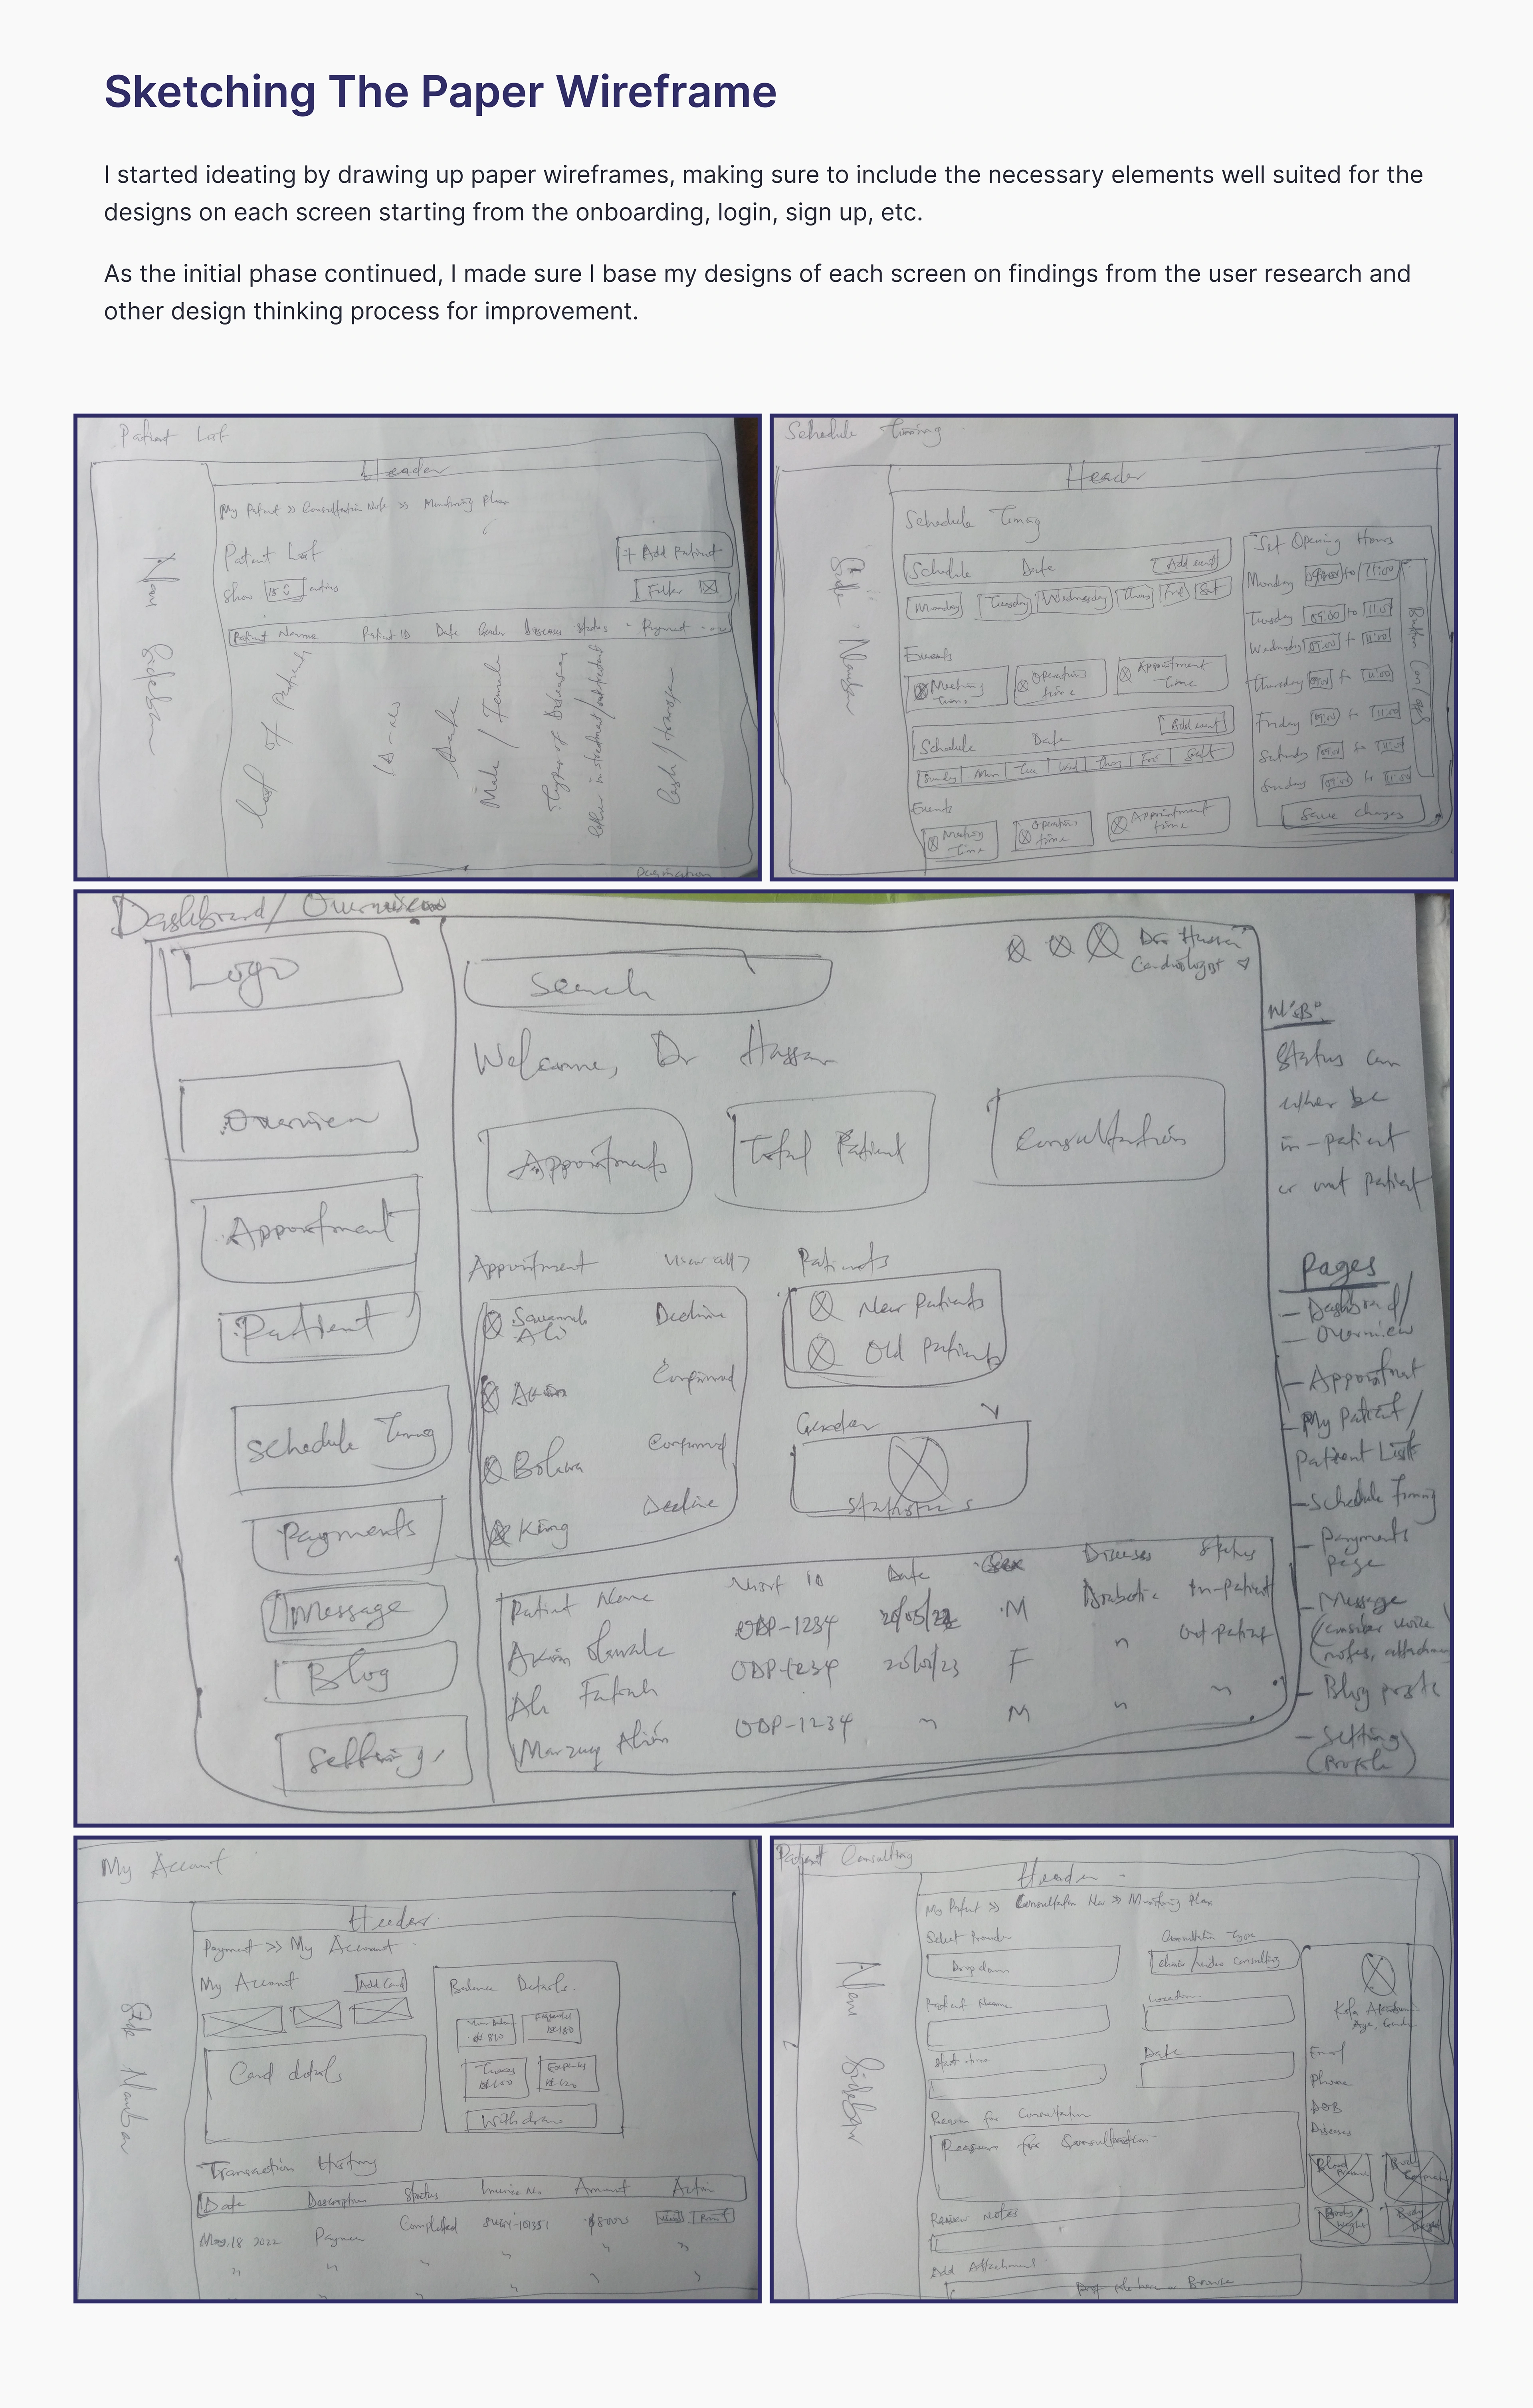 Sketching The Paper Wireframe
I started ideating by drawing up paper wireframes, making sure to include the necessary elements well suited for the
designs on each screen starting from the onboarding, login, sign up, etc.
As the initial phase continued, I made sure I base my designs of each screen on findings from the user research and
other design thinking process for improvement.
Patient List
Header
My Patient >> Consultation Note >> Monitoring Plan
Patient List
+ Add Patient
Show entries
Filter
Patient Name Patient ID Date Gender Diseases Status Payment
List of Patients
Date
Male / Female
Types of Diseases
Cash / Transfer
Pagination
Schedule Timing
Header
Schedule Timing
Schedule Date Add event
Monday Tuesday Wednesday Thurs Fri Sat
Events
Meeting time
Operation time
Appointment time
Schedule Date Add event
Sunday Mon Tue Wed Thurs Fri Sat
Events
Meeting time
Operation time
Appointment time
Set Opening Hours
Monday to 11:00
Tuesday 09:00 to
Wednesday 09:00 11:00
Thursday to 11:00
Friday 09:00 to 11:00
Saturday to
Sunday to
Save changes
Dashboard/ Overview
Logo
Search
Dr Hassan
Cardiologist
Welcome, Dr Hassan
Overview
Appointment
Patient
Schedule Timing
Payments
Message
Blog
Setting
Appointments
Total Patient
Consultation
Appointment View all >
Ali Decline
Confirmed
Confirmed
King Decline
Patients
New Patients
Old Patients
Gender
Statistics
Patient Name Visit ID Date Sex Diseases Status
ODP-1234 M Diabetic In-patient
ODP-1234 F " Out patient
ODP-1234 " M " "
N.B:
Status can
either be
in-patient
or out patient
Pages
- Dashboard/
- Overview
- Appointment
- My Patient /
Patient List
- Schedule Timing
- Payments
page
- Message
(consider voice
notes,
- Blog posts
- Setting
(Profile)
My Account
Header
Payment >> My Account
My Account Add Card
Card details
Balance Details
Withdraw
Transaction History
Date Description Status Invoice No. Amount Action
May, 18 2022 Completed
Side
Patient Consulting
Header
My Patient >> Consultation >> Monitoring Plan
Select Provider
Drop down
Consultation Type
Patient Name
Location
Start time
Date
Reason for Consultation
Reason for Consultation
Review Notes
Add Attachment
Browse
Menu Sidebar
Email
Phone
DOB
Diseases